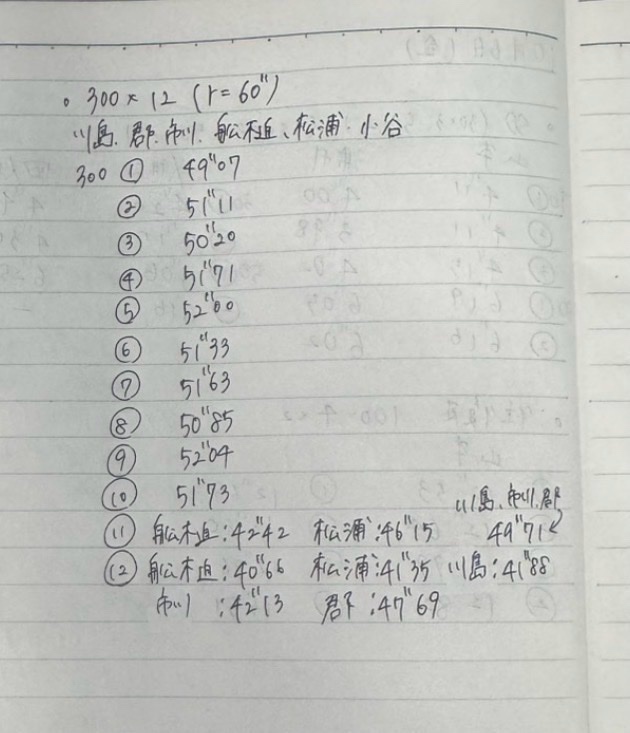 。300×12 (r=60")
川島、郡、市川、舩木追、松浦、小谷
300 ① 49"07
② 51"11
③ 50"20
④ 51"71
⑤ 52"00
⑥ 51"33
⑦ 51"63
⑧ 50"85
⑨ 52"04
⑩ 51"73
川島、市川、郡
⑪ 舩木追:42"42 松浦:46"15 49"71
⑫ 舩木追:40"66 松浦:41"35 川島:41"88
市川:42"13 郡:47"69